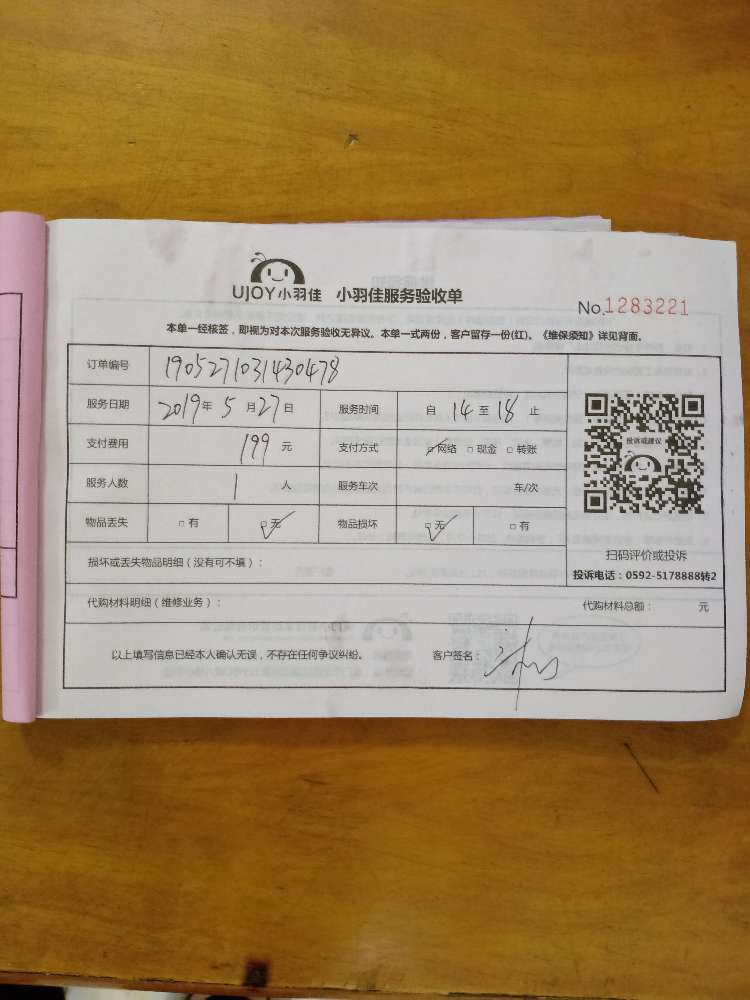 UJOY小羽佳 小羽佳服务验收单
No.1283221
本单一经核签，即视为对本次服务验收无异议。本单一式两份，客户留存一份(红)。《维保须知》详见背面。
订单编号 1905271031430478
服务日期 2019年5月27日 服务时间 自14至18止
支付费用 199元 支付方式 网络 现金 转账
服务人数 1人 服务车次 车/次
物品丢失 有 无 物品损坏 无 有
投诉或建议
扫码评价或投诉
投诉电话：0592-5178888转2
损坏或丢失物品明细（没有可不填）：
代购材料明细（维修业务）： 代购材料总额： 元
以上填写信息已经本人确认无误，不存在任何争议纠纷。 客户签名：